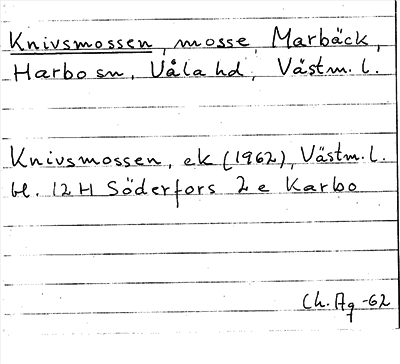 Knivsmossen, mosse, Marbäck,
Harbo sn, Våla hd, Västm. l.
Knivsmossen, ek (1962), Västm. l.
bl. 12 H Söderfors 2 e Karbo
Ch. Ag -62